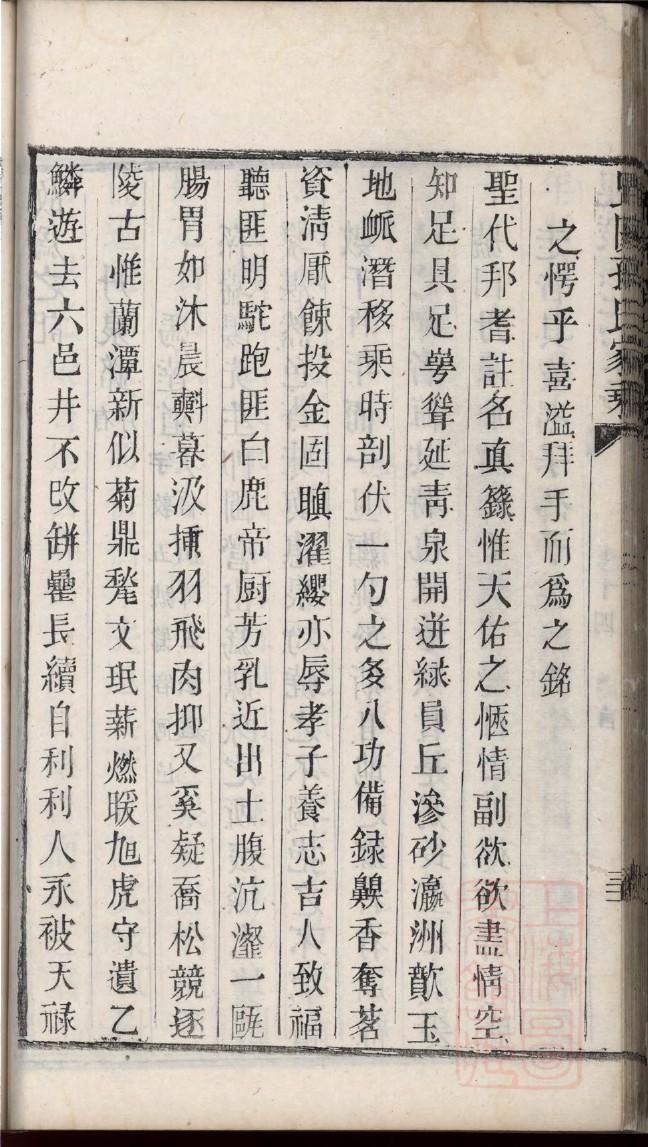 之愕乎喜溢拜手而爲之銘
聖代邦耆註名真籙惟天佑之愜情副欲欲盡情空
知足具足㝵聳延靑泉開迸綠員丘滲砂瀛洲歕玉
地衇潛移乘時剖伏一勺之多八功備録齅香奪茗
資淸厭餗投金固瞋濯纓亦辱孝子養志吉人致福
聽匪明駝跑匪白鹿帝厨芳乳近出土腹沆瀣一甌
腸胃如沐晨㪺暮汲揷羽飛肉抑又奚疑喬松競逐
陵古惟蘭潭新似菊鼎甃文珉薪燃暖旭虎守遺乙
鱗遊去六邑井不改缾罍長續自利利人永被天祿
孫氏家乘